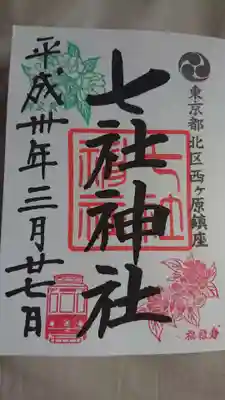 東京都北区西ヶ原鎮座
七社神社
平成卅年三月廿七日